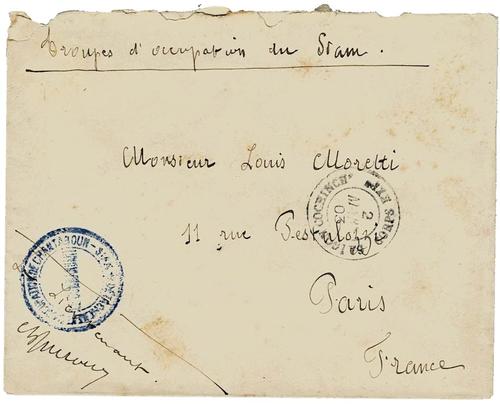 Troupes d'occupation du Siam.
Monsieur Louis Moretti
11 rue Pestalozzi
Paris
France
CORPS EXP
COCHINCH
2
03
DE CHANTABOUN - SIAM